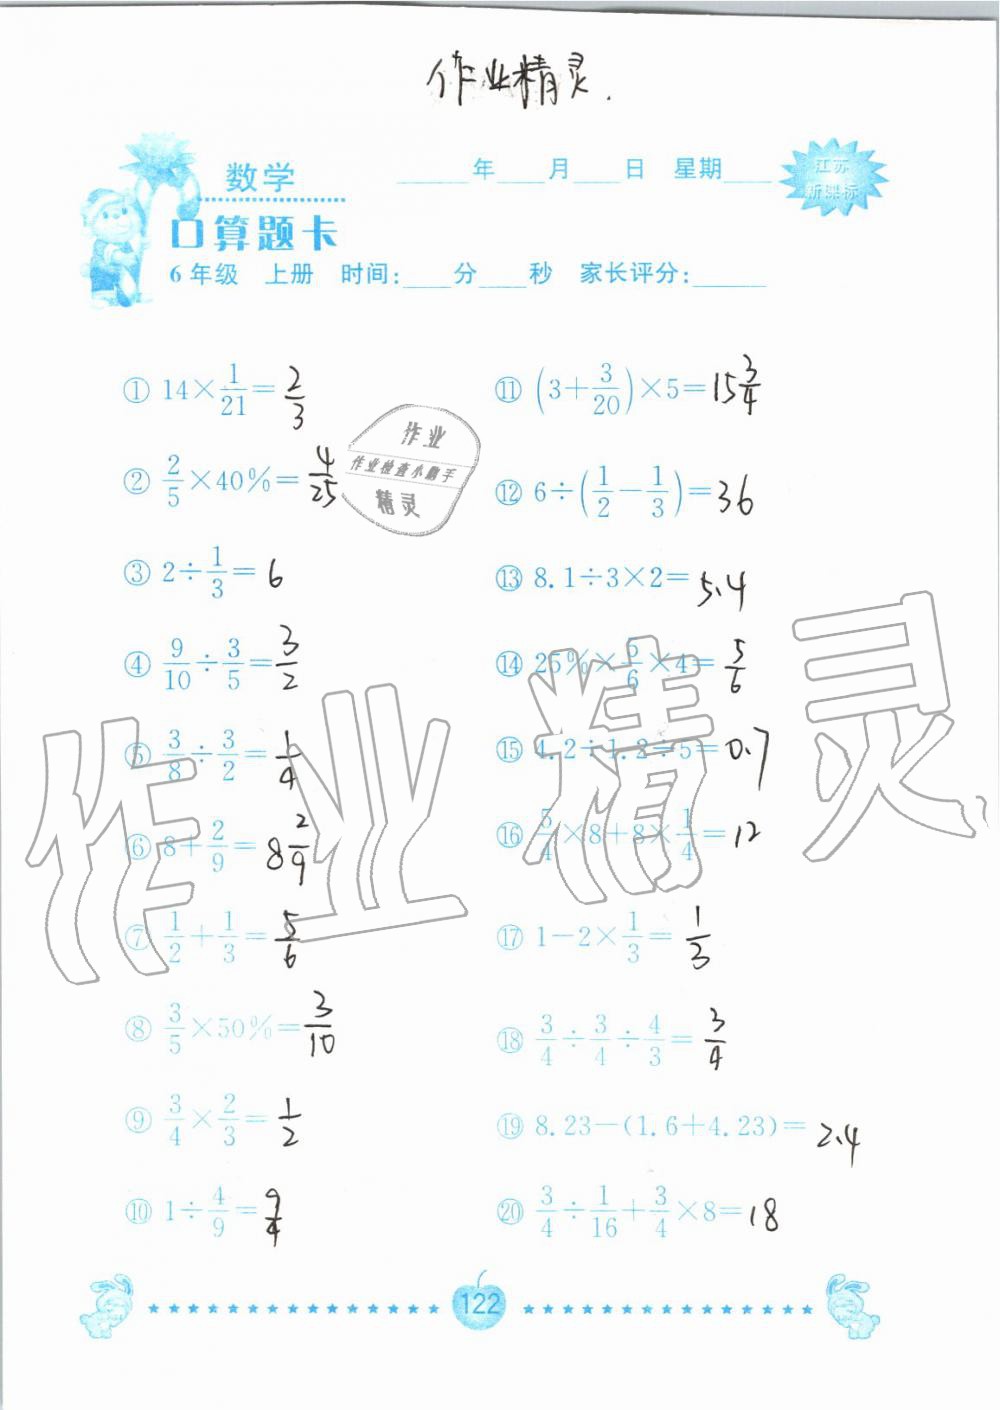 作业精灵.
数学 ____年____月____日 星期____
江苏
新课标
口算题卡
6年级 上册 时间:____分____秒 家长评分:____
① 14×1/21=2/3
② 2/5×40%=4/25
③ 2÷1/3=6
④ 9/10÷3/5=3/2
⑤ 3/8÷3/2=1/4
⑥ 8+2/9=8 2/9
⑦ 1/2+1/3=5/6
⑧ 3/5×50%=3/10
⑨ 3/4×2/3=1/2
⑩ 1÷4/9=9/4
⑪ (3+3/20)×5=15 3/4
⑫ 6÷(1/2-1/3)=36
⑬ 8.1÷3×2=5.4
⑭ 25%×5/6×4=5/6
⑮ 4.2÷1.2÷5=0.7
⑯ 5/4×8+8×1/4=12
⑰ 1-2×1/3=1/3
⑱ 3/4÷3/4÷4/3=3/4
⑲ 8.23-(1.6+4.23)=2.4
⑳ 3/4÷1/16+3/4×8=18
作业
作业检查小帮手
精灵
作业精灵
122